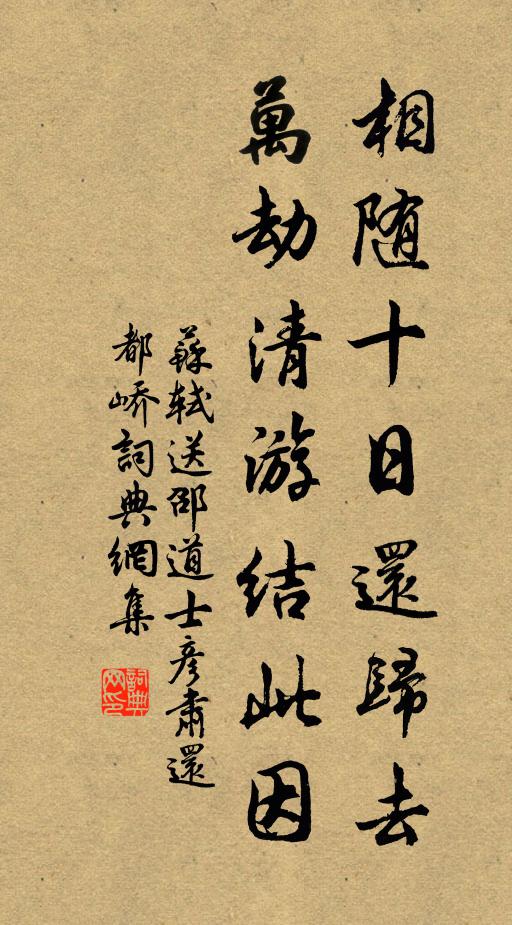 相随十日還歸去
萬劫清游結此因
蘇軾送邵道士彥肅還
都嶠詞典網集
詞典网印